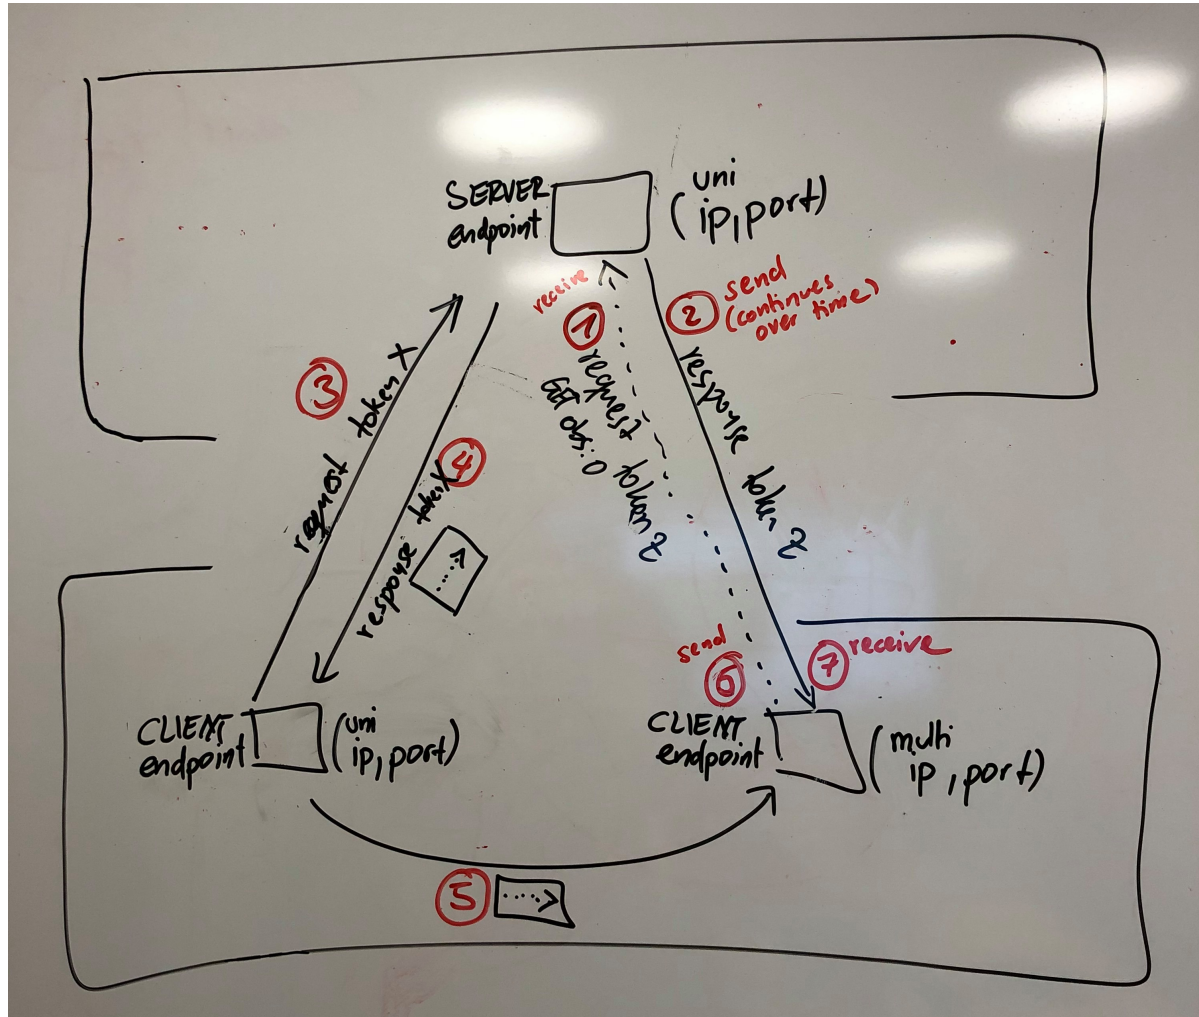 SERVER
endpoint
uni
(ip, port)
receive
1
request token Z
GET obs:0
2
send
(continues
over time)
response token Z
3
request token X
4
response token X
send
6
7
receive
CLIENT
endpoint
(uni
ip, port)
CLIENT
endpoint
(multi
ip, port)
5